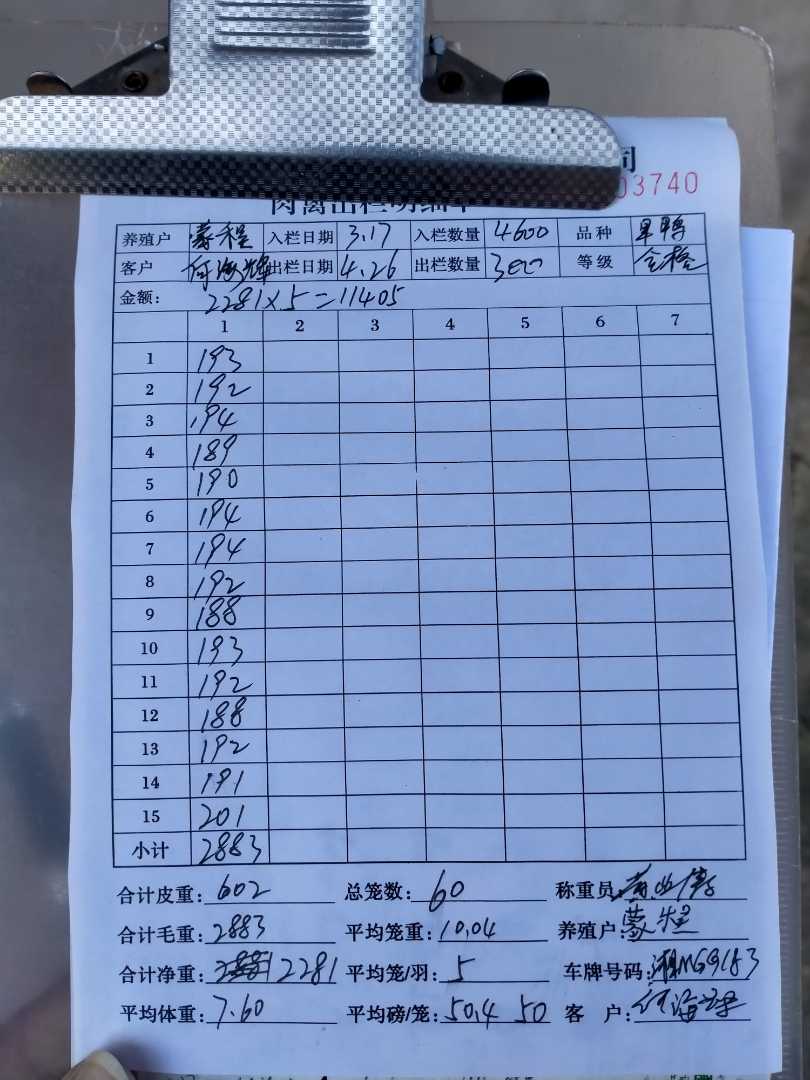 司
03740
肉禽出栏明细单
养殖户 蒙程 入栏日期 3.17 入栏数量 4600 品种 旱鸭
客户 何海辉 出栏日期 4.26 出栏数量 300 等级
金额: 2281×5=11405
1 2 3 4 5 6 7
1 193
2 192
3 194
4 189
5 190
6 194
7 194
8 192
9 188
10 193
11 192
12 188
13 192
14 191
15 201
小计 2883
合计皮重: 602 总笼数: 60 称重员:
合计毛重: 2883 平均笼重: 10.04 养殖户: 蒙程
合计净重: 2281 平均笼/羽: 5 车牌号码: 湘MG9183
平均体重: 7.60 平均磅/笼: 50.4 50 客 户: 何海辉